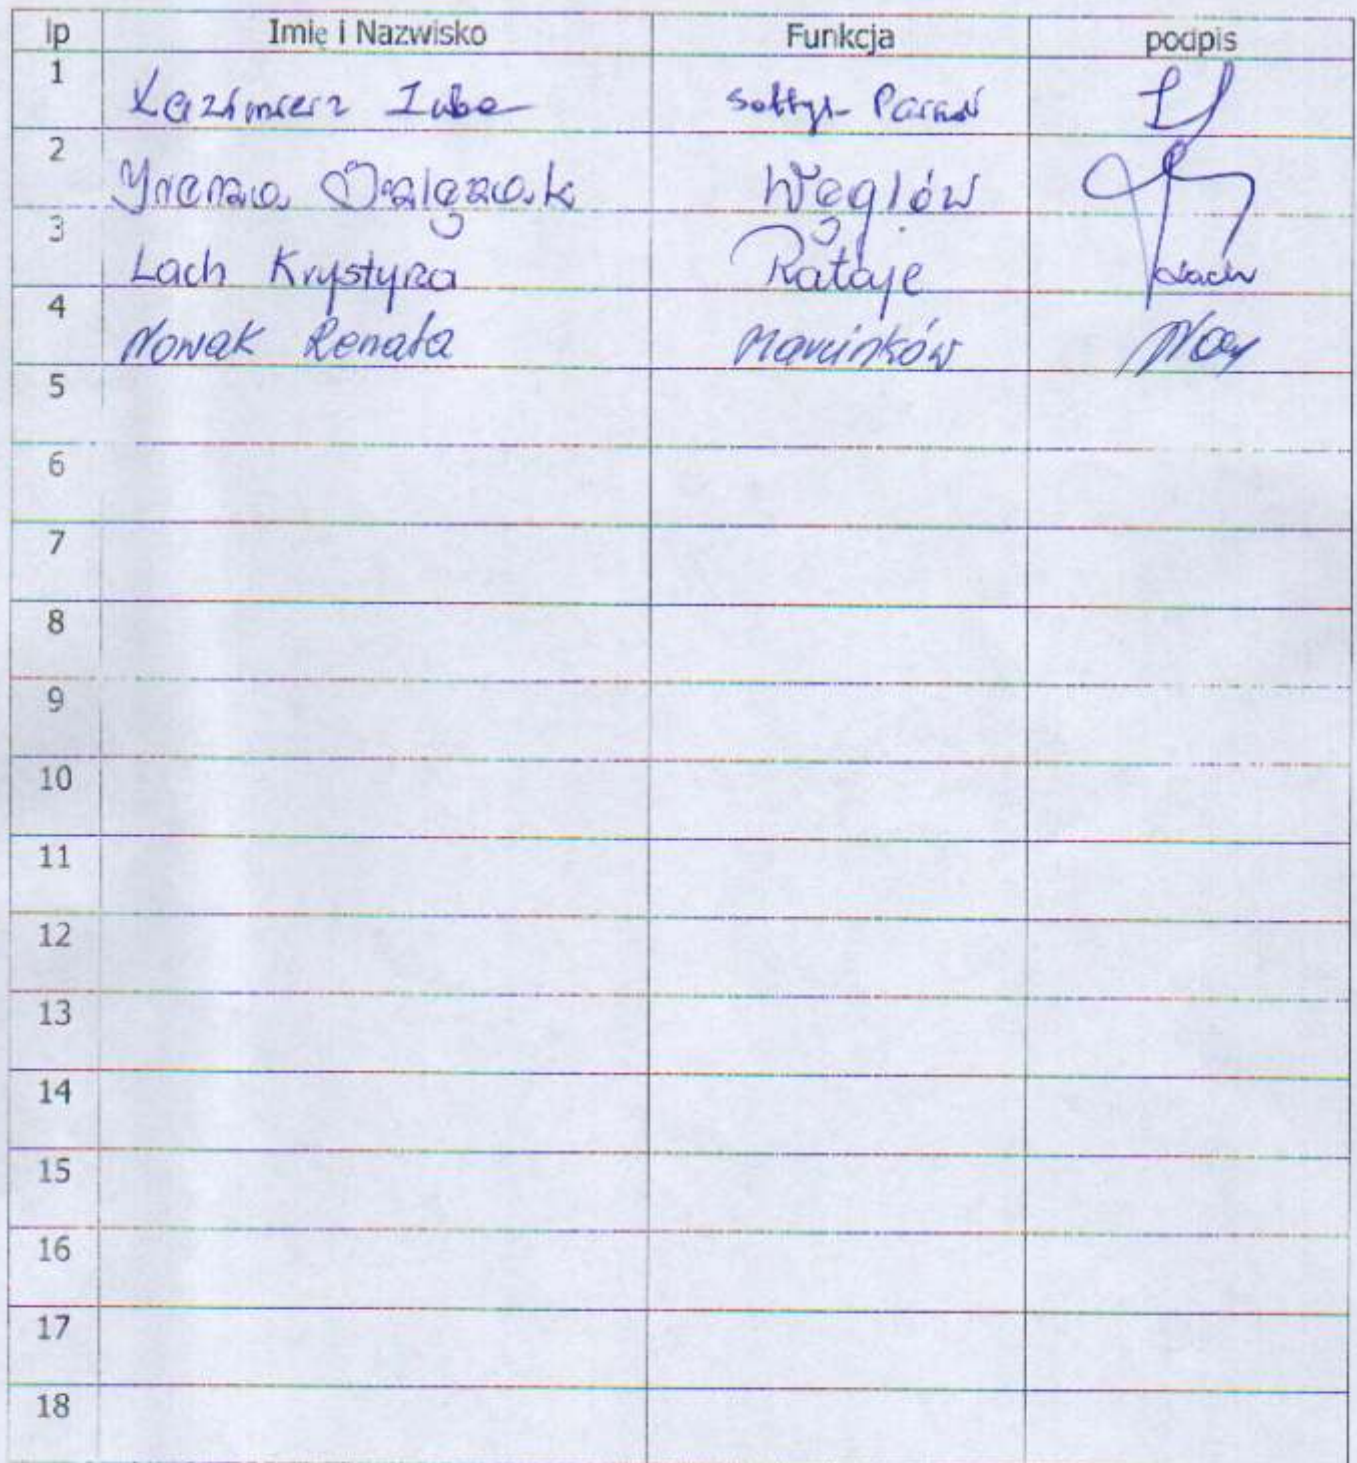 lp Imię i Nazwisko Funkcja podpis
1 Kazimierz Sołtys
2 Węglów
3 Lach Krystyna Rataje Lach
4 Nowak Renata Marcinków
5
6
7
8
9
10
11
12
13
14
15
16
17
18